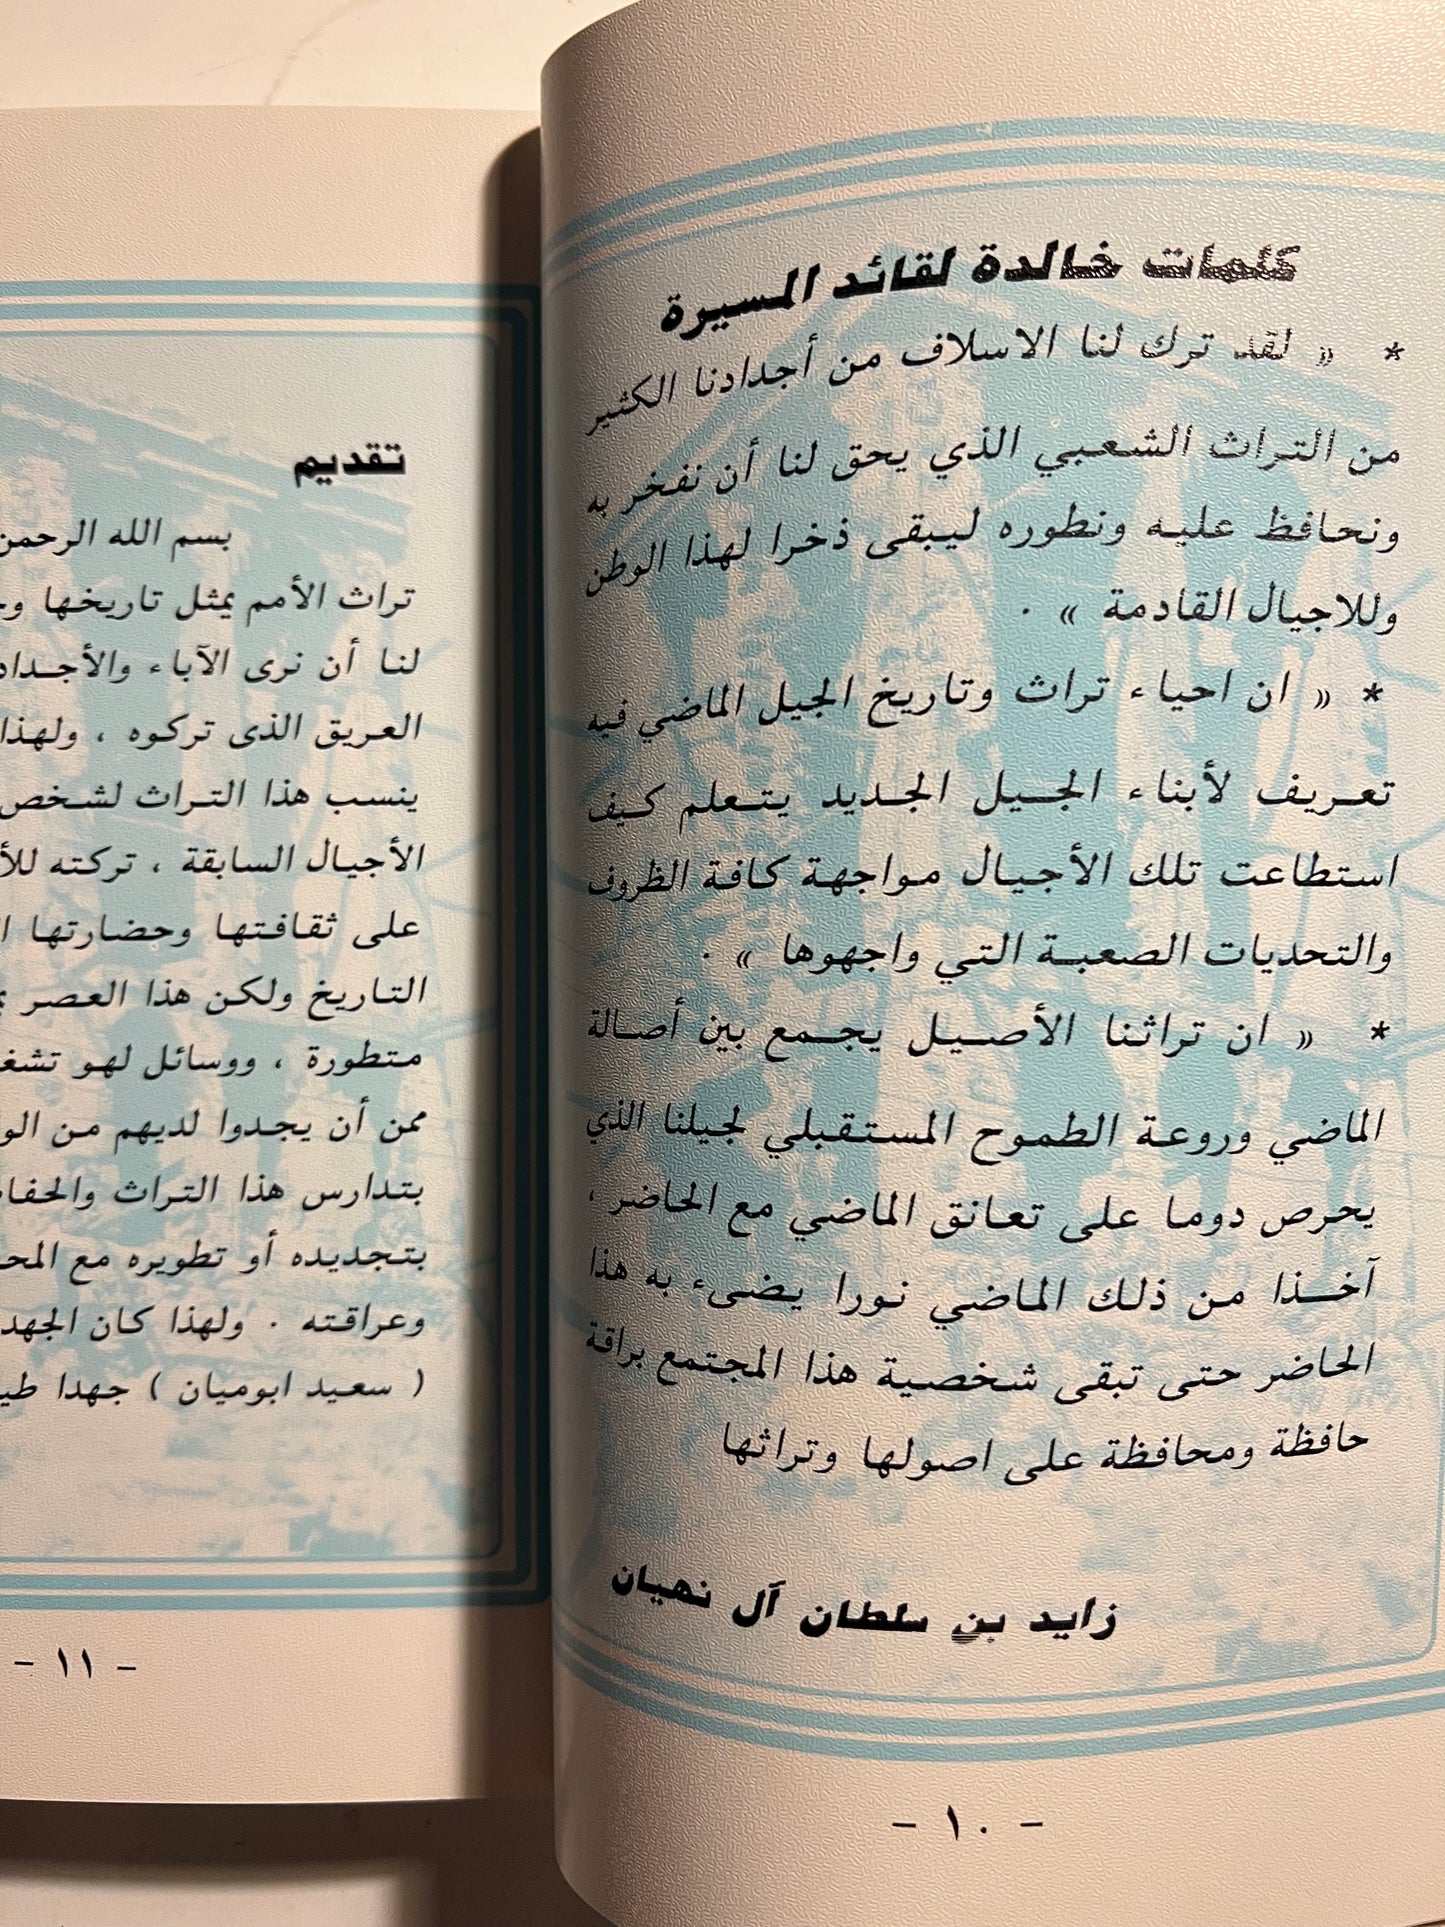 كلمات خالدة لقائد المسيرة
* « لقد ترك لنا الاسلاف من أجدادنا الكثير
من التراث الشعبي الذي يحق لنا أن نفخر به
ونحافظ عليه ونطوره ليبقى ذخرا لهذا الوطن
وللاجيال القادمة » .
* « ان احياء تراث وتاريخ الجيل الماضي فيه
تعريف لأبناء الجيل الجديد يتعلم كيف
استطاعت تلك الأجيال مواجهة كافة الظروف
والتحديات الصعبة التي واجهوها » .
* « ان تراثنا الأصيل يجمع بين أصالة
الماضي وروعة الطموح المستقبلي لجيلنا الذي
يحرص دوما على تعانق الماضي مع الحاضر ،
آخذا من ذلك الماضي نورا يضىء به هذا
الحاضر حتى تبقى شخصية هذا المجتمع براقة
حافظة ومحافظة على اصولها وتراثها
زايد بن سلطان آل نهيان
- ١٠ -
تقديم
بسم الله الرحمن
تراث الأمم يمثل تاريخها
لنا أن نرى الآباء والأجداد
العريق الذى تركوه ، ولهذا
ينسب هذا التراث لشخص
الأجيال السابقة ، تركته
على ثقافتها وحضارتها
التاريخ ولكن هذا العصر
متطورة ، ووسائل لهو
ممن أن يجدوا لديهم من
بتدارس هذا التراث
بتجديده أو تطويره مع
وعراقته . ولهذا كان الجهد
( سعيد ابوميان ) جهدا
- ١١ -